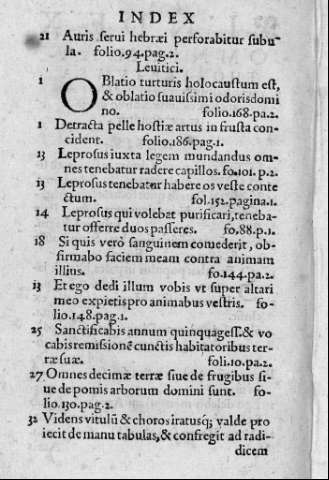 INDEX
21 Auris serui hebræi perforabitur subu-
la. folio.94.pag.2.
Leuitici.
1 OBlatio turturis holocaustum est,
& oblatio suauissimi odoris domi
no. folio.168.pa.2.
1 Detracta pelle hostiæ artus in frusta con-
cident. folio.186.pag.1.
13 Leprosus iuxta legem mundandus om-
nes tenebatur radere capillos. fo.101. p.2.
13 Leprosus tenebatur habere os veste conte
ctum. fol.152.pagina.1.
14 Leprosus qui volebat purificari, teneba-
tur offerre duos passeres. fo.88.p.1.
18 Si quis verò sanguinem comederit, ob-
firmabo faciem meam contra animam
illius. fo.144.pa.2.
13 Et ego dedi illum vobis vt super altari
meo expietis pro animabus vestris. fo-
lio.148.pag.1.
25 Sanctificabis annum quinquagess. & vo
cabis remissionẽ cunctis habitatoribus ter-
ræ suæ. foli.10.pa.2.
27 Omnes decimæ terræ siue de frugibus si-
ue de pomis arborum domini sunt. fo-
lio.130.pag.2.
32 Videns vitulũ & choros iratusq; valde pro
iecit de manu tabulas, & confregit ad radi-
dicem